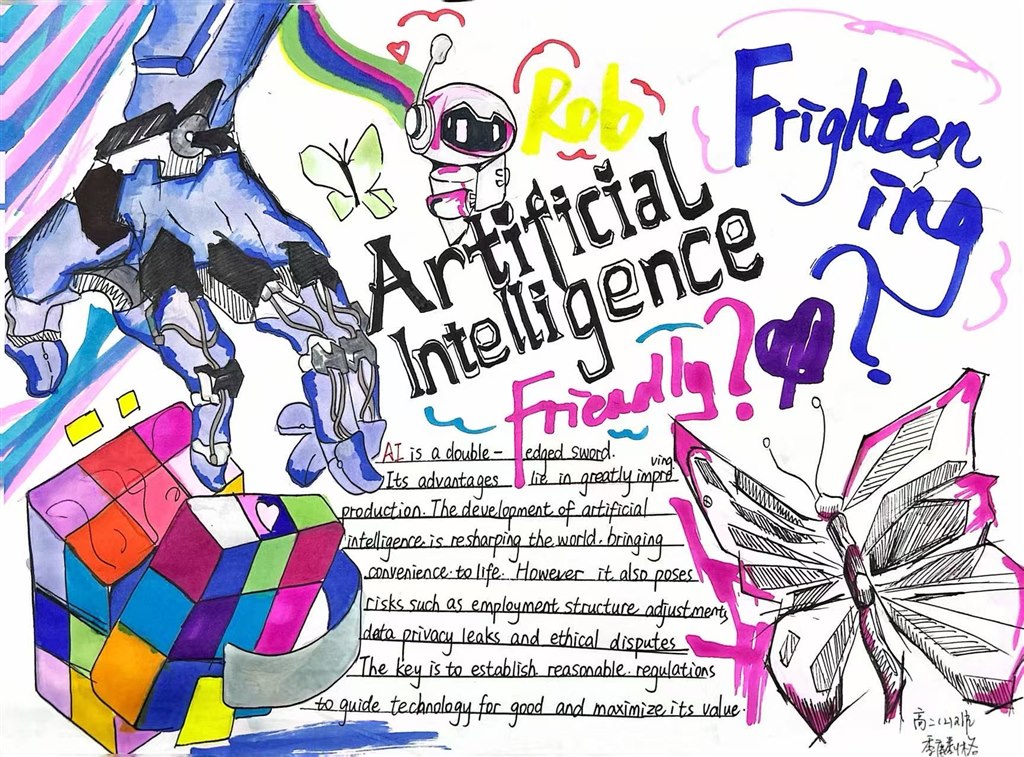 Rob
Frighten
ing
?
Artificial
Intelligence
Friendly?
AI is a double- edged sword.
Its advantages lie in greatly improving
production. The development of artificial
intelligence is resharping the world. bringing
convenience. to life. However it also poses
risks such as employment structure adjustments,
data privacy leaks and ethical disputes
The key is to establish reasonable. regulations
to guide technology for good and maximize its value.